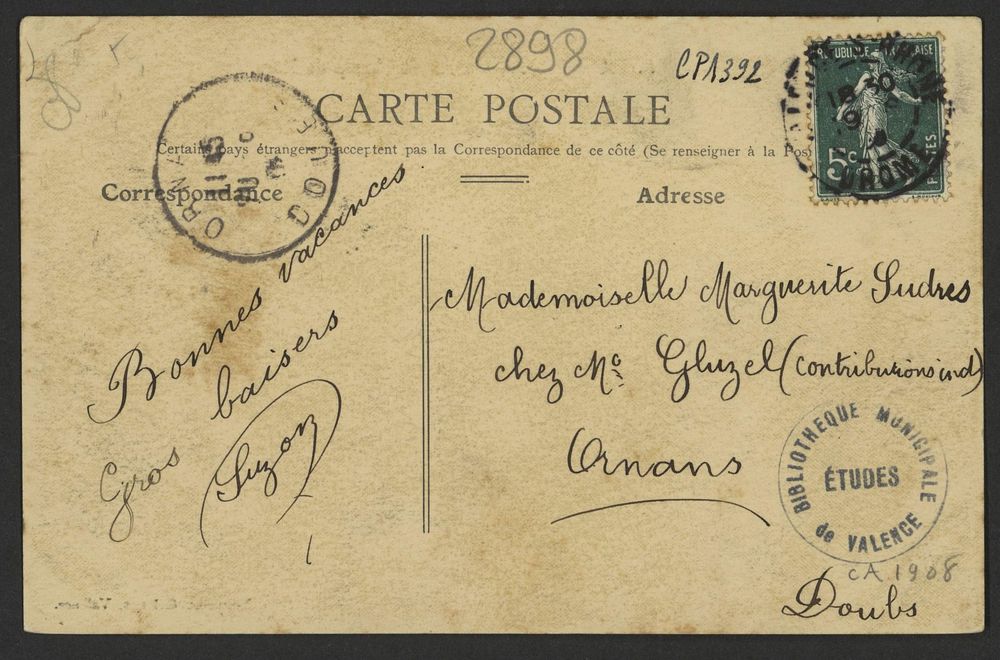 2898
CP1392
CARTE POSTALE
Certains pays étrangers n'acceptent pas la Correspondance de ce côté (Se renseigner à la Pos
Correspondance
Adresse
REPUBLIQUE FRANÇAISE
5c
POSTES
18 30
DROME
ORNANS
11-45
DOUBS
Bonnes vacances
Gros baisers
Suzon
Mademoiselle Marguerite Sudres
chez Mr Gluzel (contributions ind)
Ornans
Doubs
BIBLIOTHEQUE MUNICIPALE
ÉTUDES
de VALENCE
CA 1908